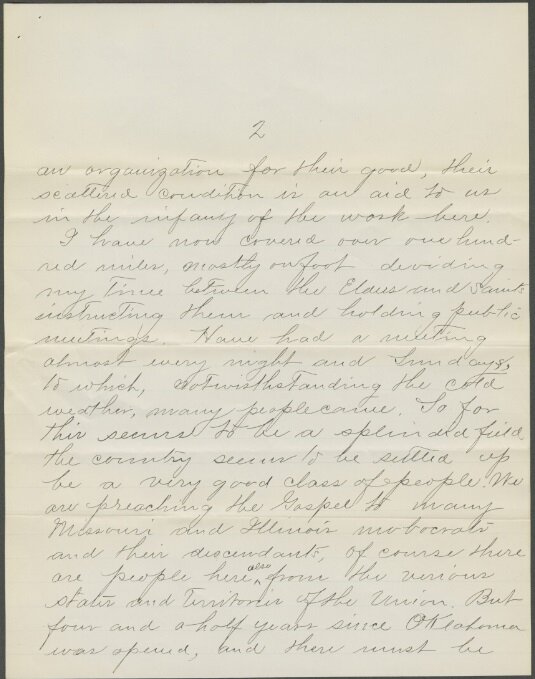 2
an organization for their good, their
scattered condition is an aid to us
in the infany of the work here.
I have now covered over one hund-
red miles, mostly on foot deviding
my time between the Elders and Saints
instructing them and holding public
meetings. Have had a meeting
almost every night and Sundays,
to which, notwisthstanding the cold
weather, many people came. So far
this seems to be a splended field
the country seems to be settled up
be a very good class of people. We
are preaching the Gospel to many
Missouri and Illinois mobocrats
and their descendants, of course there
are people here also from the verious
states and Territories of the Union. But
four and a half years since Oklahoma
was opened, and there must be